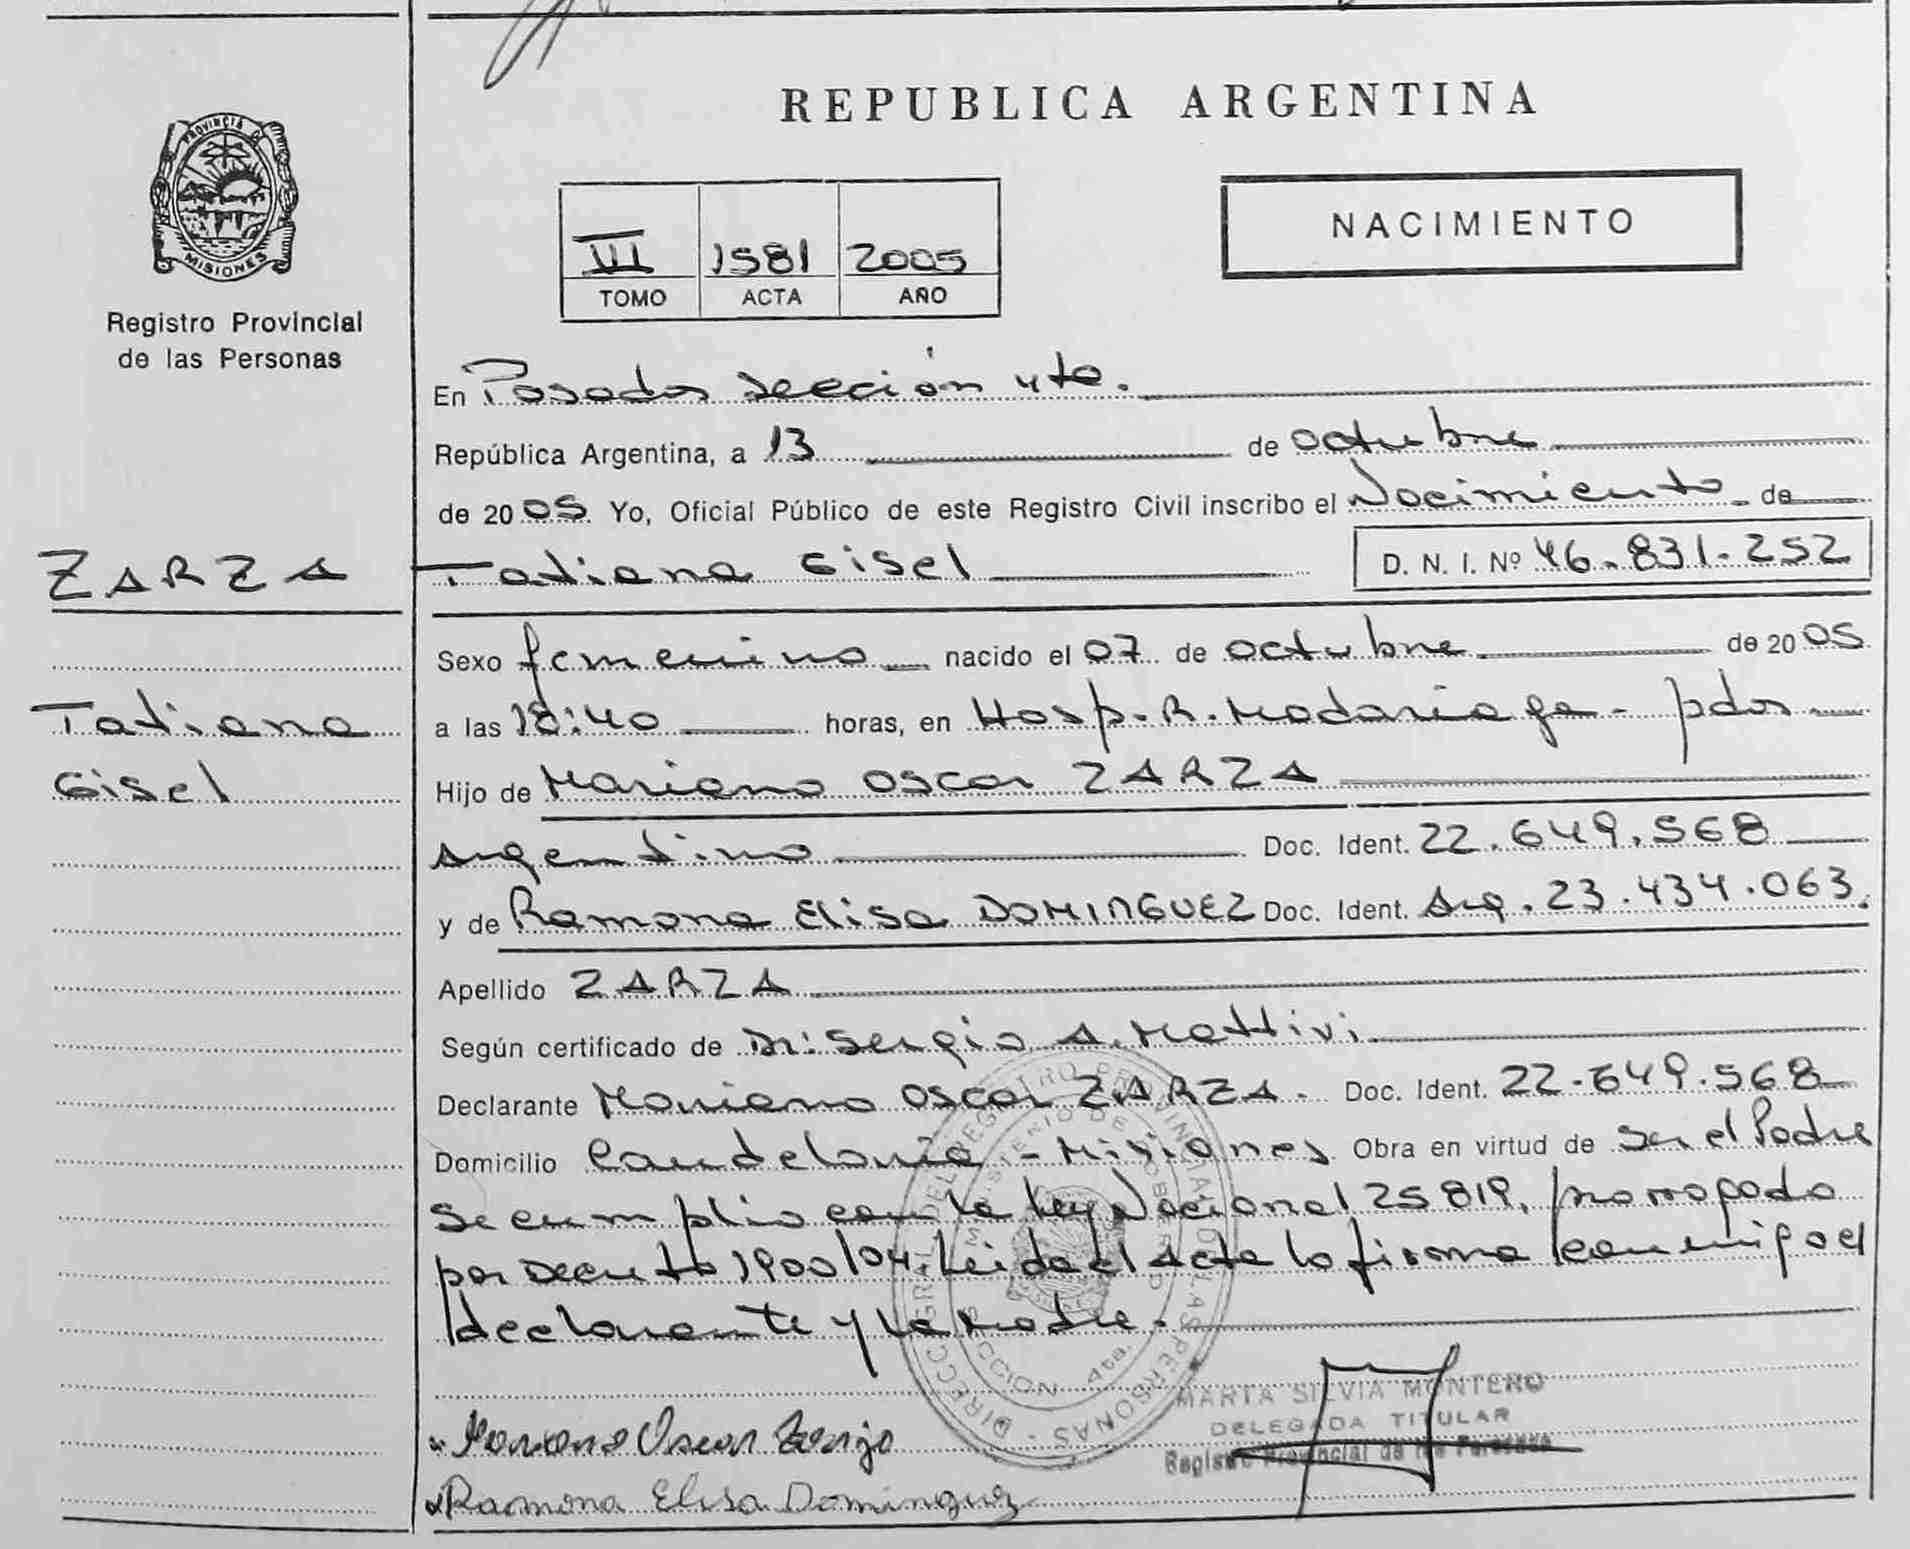 REPUBLICA ARGENTINA
PROVINCIA D
MISIONES
Registro Provincial
de las Personas
III 1581 2005
TOMO ACTA AÑO
NACIMIENTO
En Posadas sección 4ta.
República Argentina, a 13 de octubre
de 2005 Yo, Oficial Público de este Registro Civil inscribo el Nacimiento de
ZARZA
Tatiana Gisel
D. N. I. Nº 46.831.252
Sexo femenino nacido el 07 de octubre de 2005
Tatiana
Gisel
a las 18:40 horas, en Hosp. R. Madariaga - pdas
Hijo de Mariano Oscar ZARZA
argentino Doc. Ident. 22.649.568
y de Ramona Elisa DOMINGUEZ Doc. Ident. Arg. 23.434.063.
Apellido ZARZA
Según certificado de Dr: Sergio A. Mattivi
Declarante Mariano Oscar ZARZA. Doc. Ident. 22.649.568
Domicilio Candelaria - Misiones Obra en virtud de ser el Padre
se cumplio con la ley Nacional 25819, prorrogado
por Decreto 1900/04. Leida el acta la firma conmigo el
declarante y la madre.
DIRECC. GRAL. DEL REGISTRO PROVINCIAL DE LAS PERSONAS
MINISTERIO DE GOBIERNO
SECCION 4ta.
MARTA SILVIA MONTERO
DELEGADA TITULAR
Registro Provincial de las Personas
Mariano Oscar Zarza
Ramona Elisa Dominguez